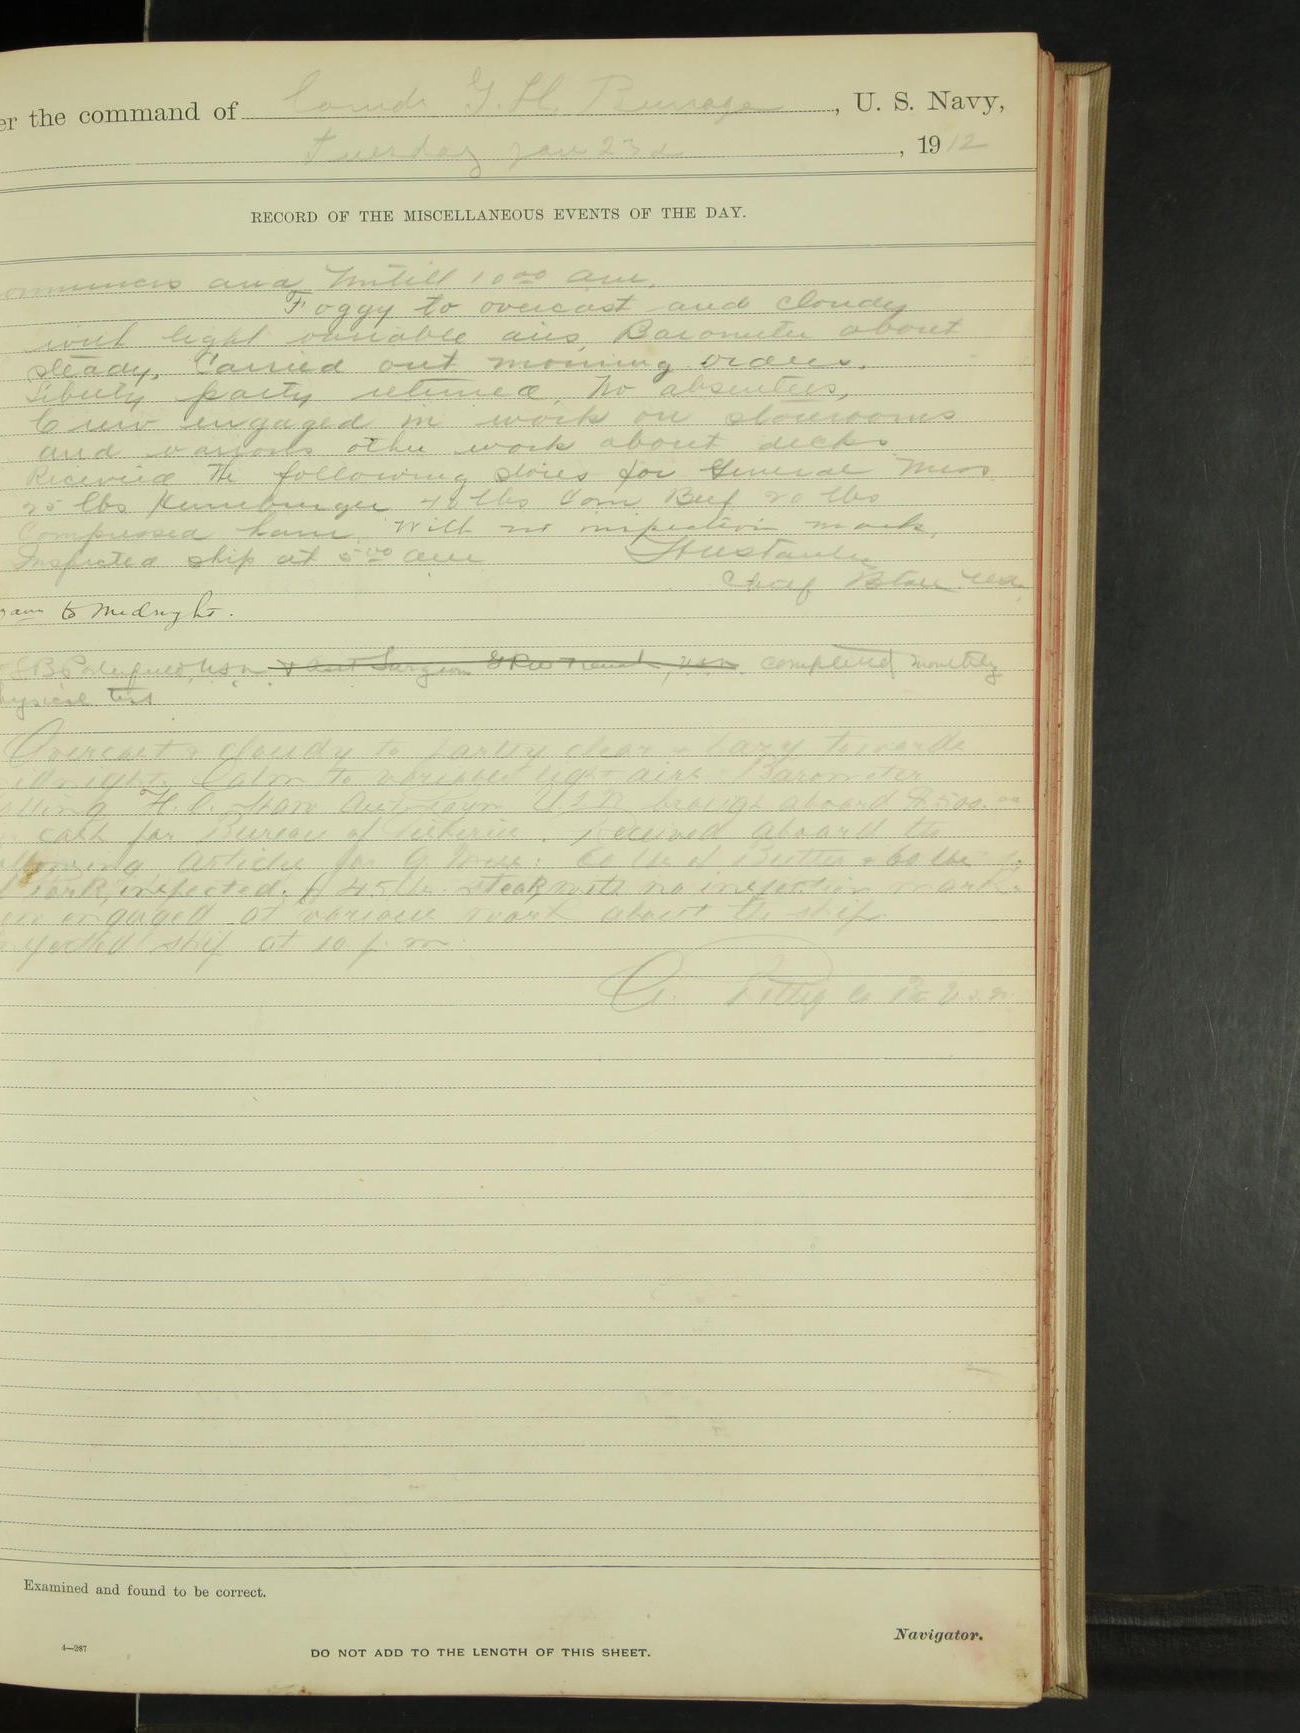 er the command of Comdr G. H. Burrage, U. S. Navy,
Tuesday Jan 23d, 1912
RECORD OF THE MISCELLANEOUS EVENTS OF THE DAY.
and untill 10 00 am.
Foggy to overcast and cloudy
with light variable airs, Barometer about
steady. Carried out morning orders.
Liberty party returned. No absentees,
Crew engaged in work on storerooms
and various other work about decks
Received the following stores for General Mess
25 lbs Hamburger 40 lbs Corn Beef 20 lbs
Compressed ham. With no inspection mark.
Inspected ship at 5 00 am
Chief Btsn
am to Midnight.
completed monthly
hysical test
Overcast & cloudy to partly clear & hazy towards
idnight. Calm to variable light airs. Barometer
alling. brought aboard $500. 00
cash for Bureau of Received aboard the
ollowing articles for G. Mess: 60 lbs of Butter & 60 lbs
Pork, inspected. & 45 lbs steak, with no inspection mark.
engaged at various work about the ship.
ship at 10 p. m.
Examined and found to be correct.
Navigator.
4—287
DO NOT ADD TO THE LENGTH OF THIS SHEET.